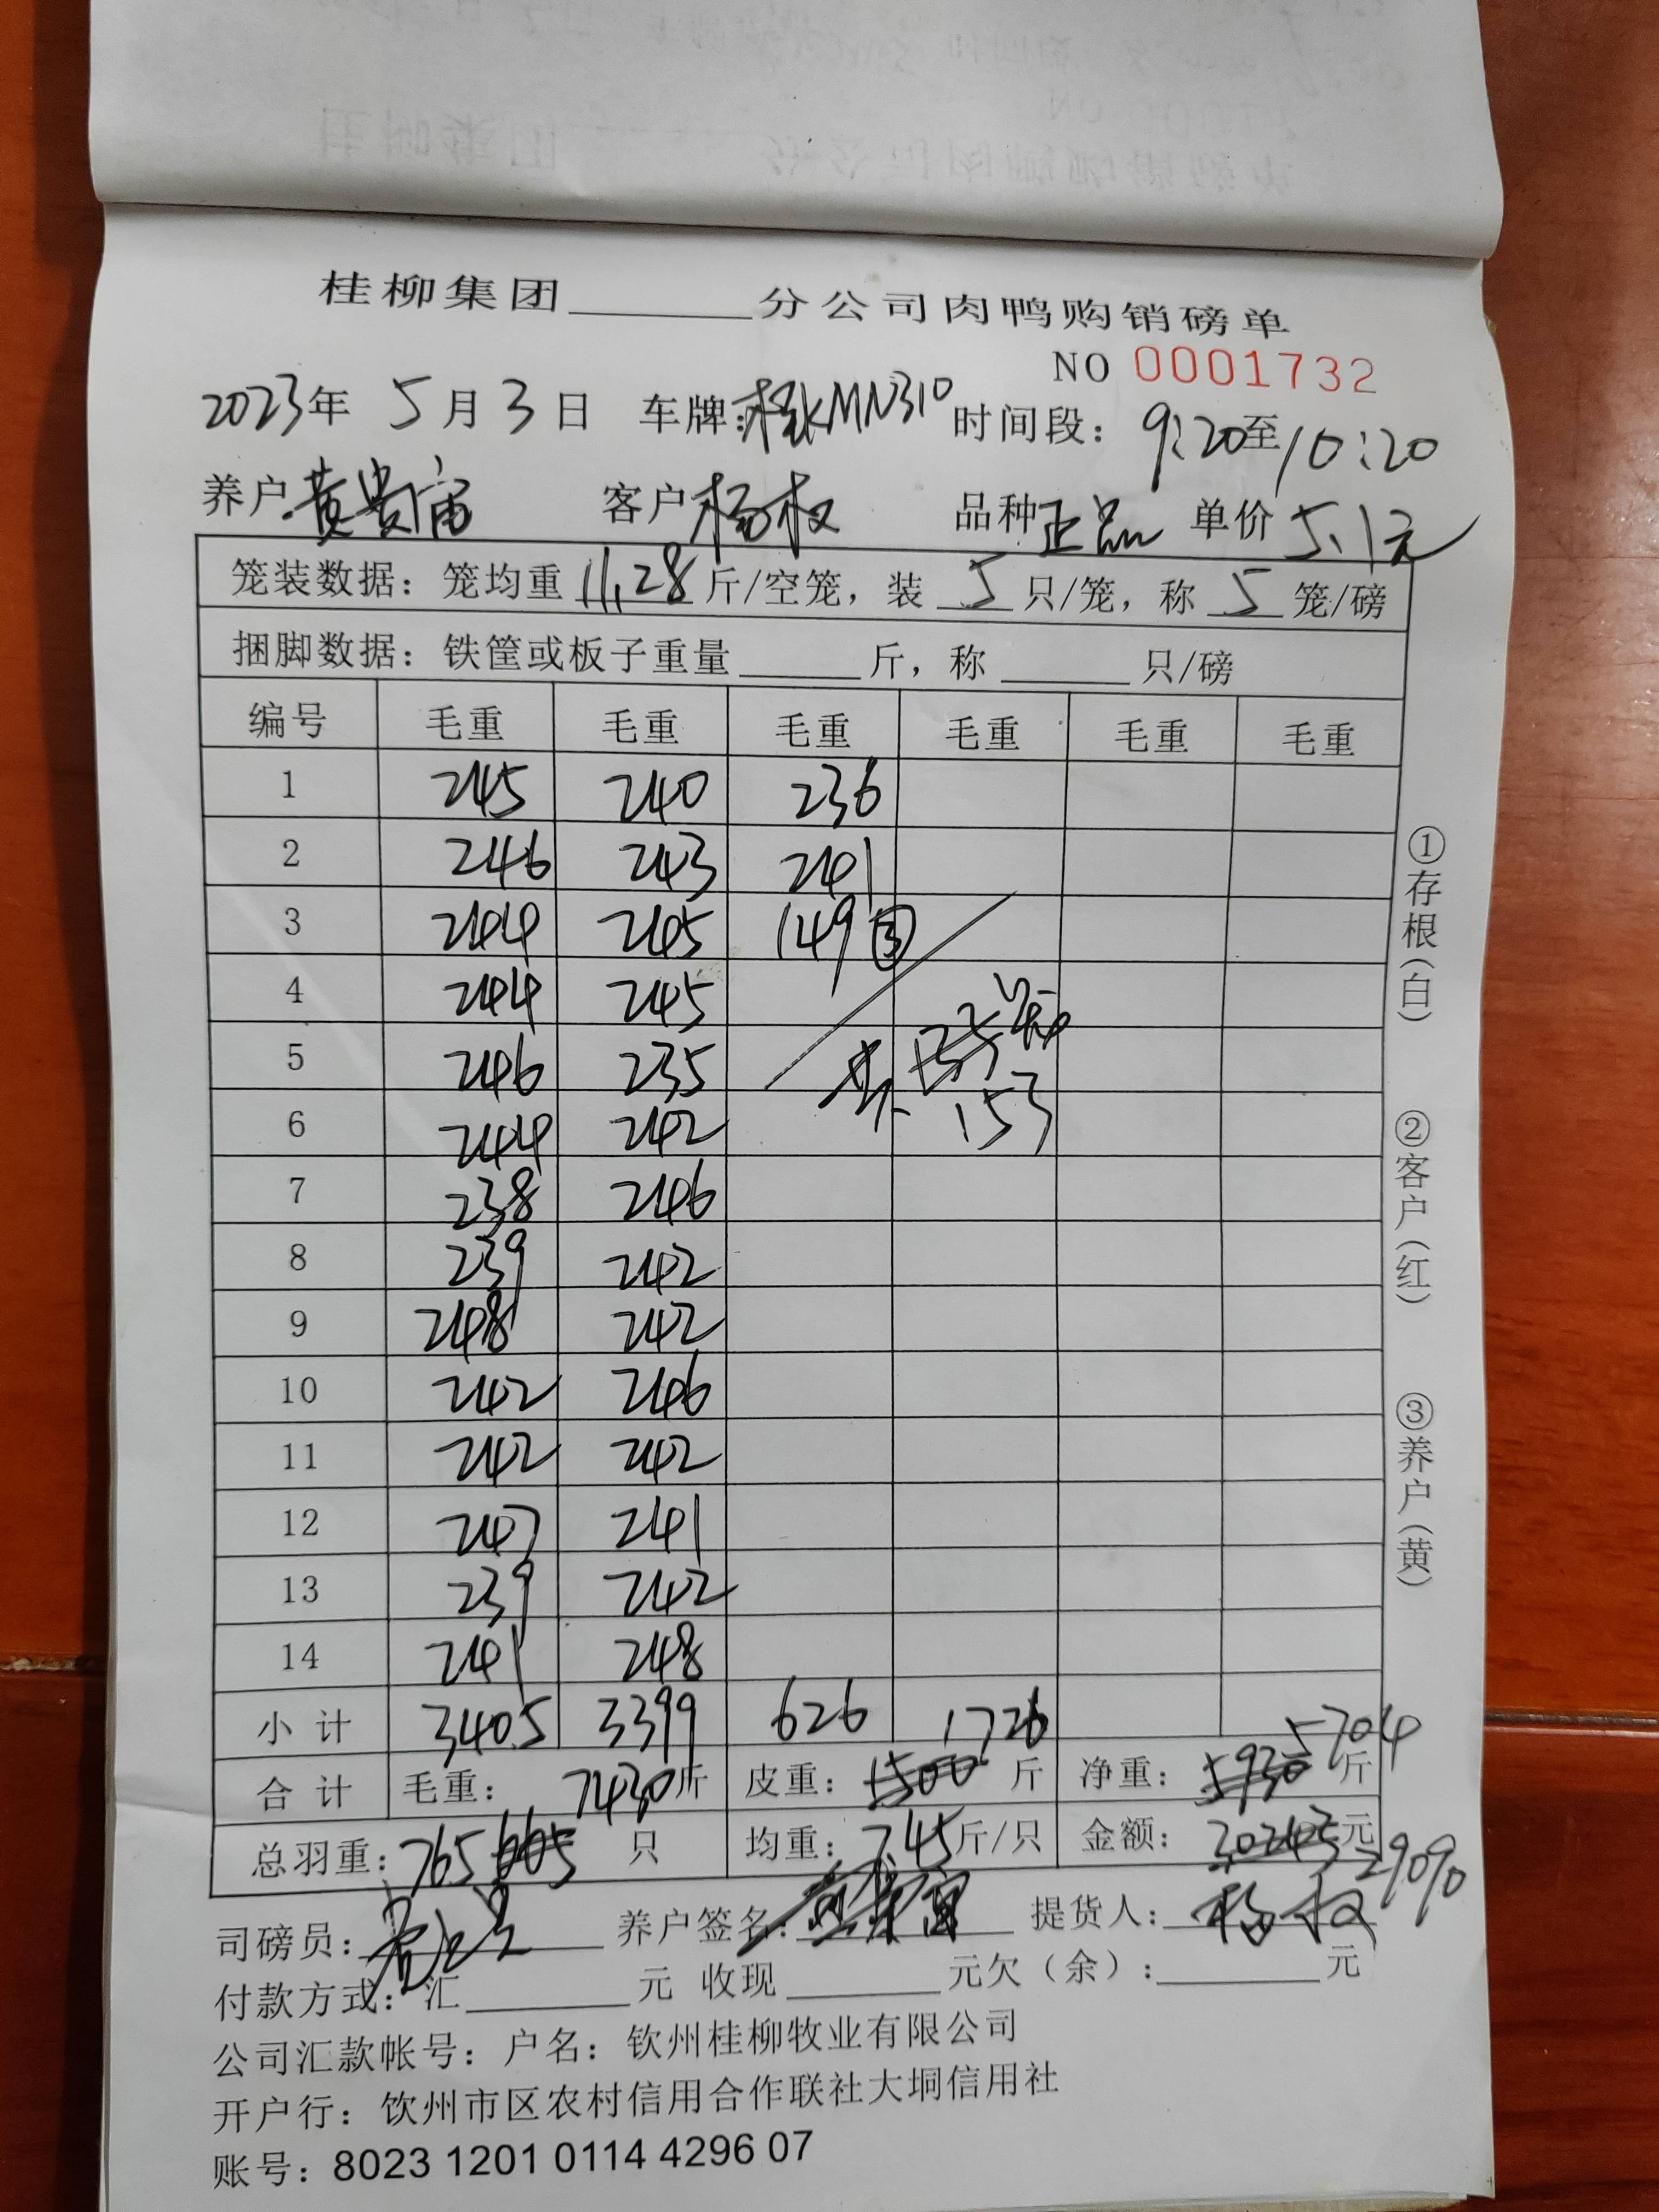 桂柳集团______分公司肉鸭购销磅单
NO 0001732
2023年 5月3日 车牌：MN310 时间段：9:20至10:20
养户 黄贵 客户 杨权 品种 正品 单价 5.1元
笼装数据：笼均重 11.28 斤/空笼，装 5 只/笼，称 5 笼/磅
捆脚数据：铁筐或板子重量______斤，称______只/磅
编号 毛重 毛重 毛重 毛重 毛重 毛重
1 245 240 236
2 246 243 241
3 244 245 149 ③
4 244 245
5 246 235
6 244 242 153
7 238 246
8 239 242
9 248 242
10 242 246
11 242 242
12 247 241
13 239 242
14 241 248
小计 3405 3399 626 1726 5704
合计 毛重：7430斤 皮重：1500 斤 净重：5930 斤
总羽重：765 665 只 均重：7.45斤/只 金额：30243元
29090
司磅员： 养户签名： 提货人：杨权
付款方式：汇______元 收现______元欠（余）：______元
公司汇款帐号：户名：钦州桂柳牧业有限公司
开户行：钦州市区农村信用合作联社大垌信用社
账号：8023 1201 0114 4296 07
①存根（白）
②客户（红）
③养户（黄）